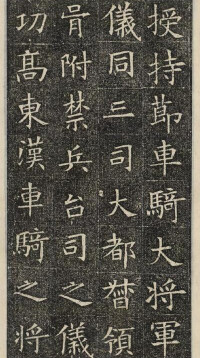 授持節車騎大将軍
儀同三司大都督領
胥附禁兵台司之儀
功髙東漢車騎之将